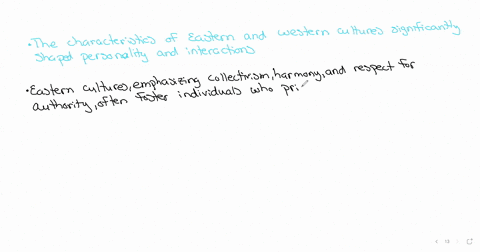 •The characteristics of Eastern and western cultures significantly
shaped personality and interactions
•Eastern cultures, emphasizing collectivism, harmony, and respect for
authority, often foster individuals who pri